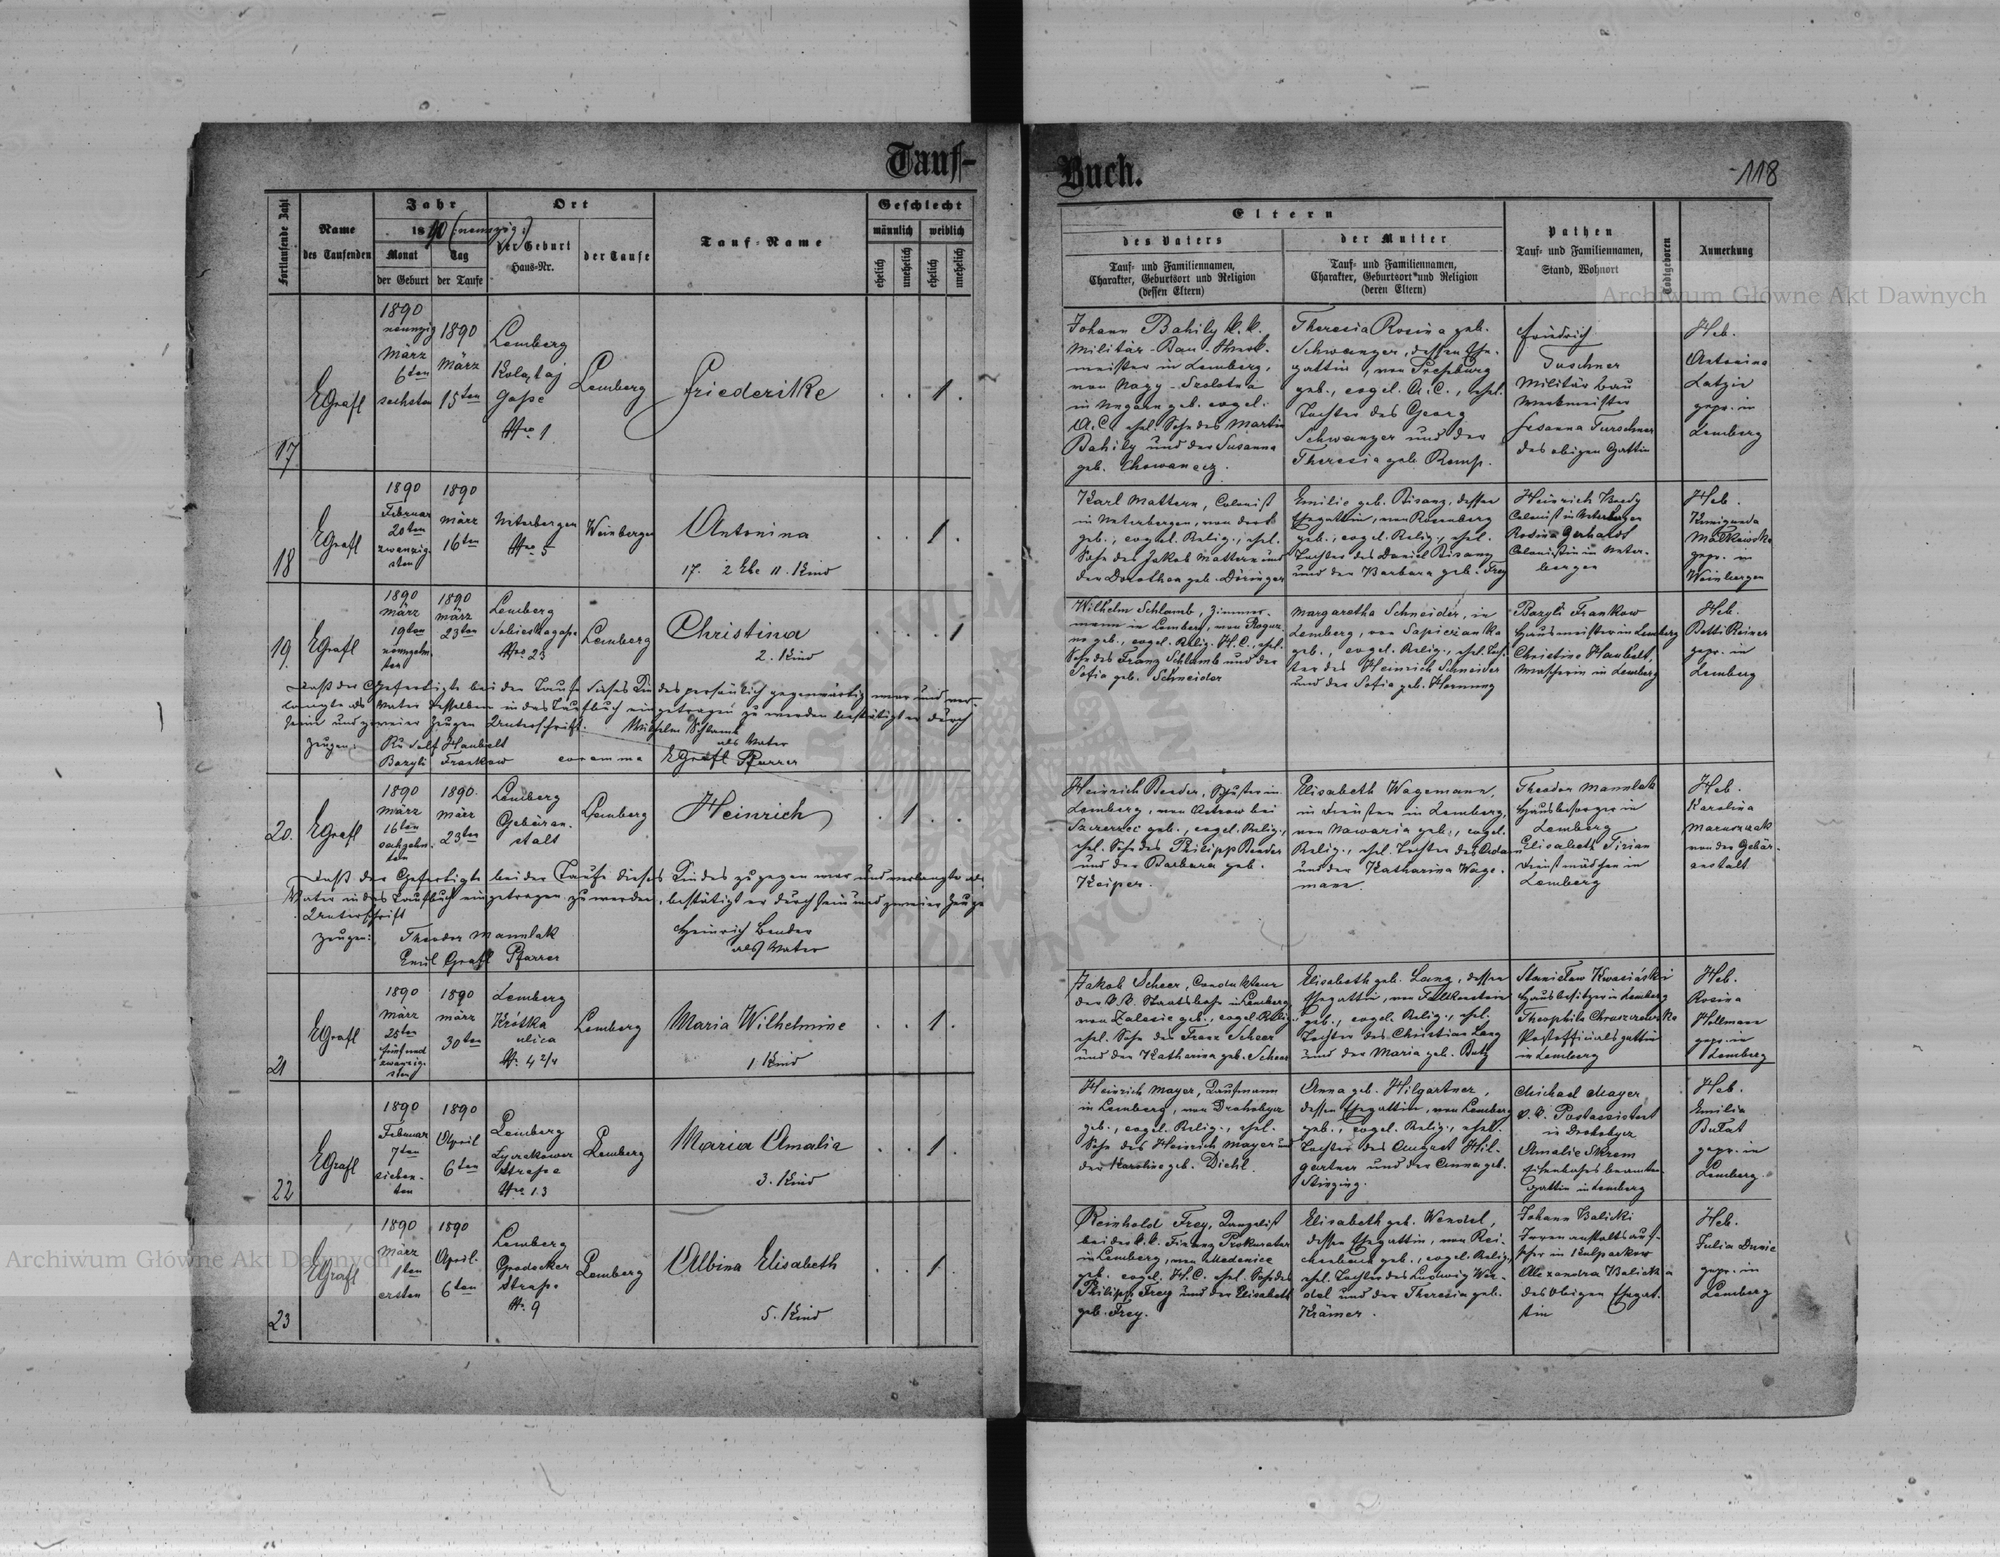 Tauf-
Buch.
118
Fortlaufende Zahl
Name
des Taufenden
Jahr
1890 (neunzig)
Monat
Tag
der Geburt
der Taufe
Ort
der Geburt
Haus-Nr.
der Taufe
Tauf-Name
Geschlecht
männlich
weiblich
ehelich
unehelich
ehelich
unehelich
Eltern
des Vaters
Tauf- und Familiennamen,
Charakter, Geburtsort und Religion
(dessen Eltern)
der Mutter
Tauf- und Familiennamen,
Charakter, Geburtsort und Religion
(deren Eltern)
Pathen
Tauf- und Familiennamen,
Stand, Wohnort
Todtgeboren
Anmerkung
17
EGrafl
1890
neunzig
März
6ten
sechsten
1890
März
15ten
Lemberg
Kołątaj
Gasse
Nro 1
Lemberg
Friederike
1
Johann Bahily k.k.
Militär-Bau-Werk-
meister in Lemberg,
von Nagy-
in Ungarn geb. evgel.
A.C. ehel. Sohn des Martin
Bahily und der Susanna
geb. Chowanecz.
Theresia Rosina geb.
Schwanzer, dessen Ehe-
gattin, von Preßburg
geb., evgel. A.C., ehel.
Tochter des Georg
Schwanzer und der
Theresia geb. Remp.
Friedrich
Turschner
Militär bau
Werkmeister
Susanna Turschner
des obigen Gattin
Heb.
Antonina
Latzin
gepr. in
Lemberg
18
EGrafl
1890
Februar
20ten
zwanzig-
sten
1890
März
16ten
Unterbergen
Nro 5
Weinbergen
Antonina
17. 2 Ehe 11. Kind
1
Karl Mattern, Colonist
in Unterbergen, von dort
geb., evgel. Relig., ehel.
Sohn des Jakob Mattern und
der Dorothea geb. Döringer
Emilie geb. Risanz, dessen
Ehegattin, von Rosenberg
geb., evgel. Relig., ehel.
Tochter des Daniel Risanz
und der Barbara geb. Frey
Heinrich Bredy
Colonist in Unterbergen
Rosina Gerhardt
Colonistin in Unter-
bergen
Heb.
Kunigunda
Małkowska
gepr. in
Weinbergen
19
EGrafl
1890
März
19ten
neunzehn-
ten
1890
März
23ten
Lemberg
Sobieskagasse
Nro 23
Lemberg
Christina
2. Kind
1
Wilhelm Schlamb, Zimmer-
mann in Lemberg, von
geb., evgel. Relig. H.C., ehel.
Sohn des Franz Schlamb und der
Sofia geb. Schneider
Margaretha Schneider, in
Lemberg, von Sapieżanka
geb., evgel. Relig., ehel. Toch-
ter des Heinrich Schneider
und der Sofia geb. Hornung
Bazyli Frankow
Hausmeister in Lemberg
Christine Haubelt,
Wäscherin in Lemberg
Heb.
Betti Reiner
gepr. in
Lemberg
Daß der Gefertigte bei der Taufe dieses Kindes persönlich gegenwärtig war und ver-
langte als Vater desselben in das Taufbuch eingetragen zu werden bestätigt er durch
seine und zweier Zeugen Unterschrift. Wilhelm Schlamb
als Vater
Zeugen: Rudolf Haubelt
Bazyli Frankow coram me EGrafl Pfarrer
20.
EGrafl
1890
März
16ten
sechzehn-
ten
1890.
März
23ten
Lemberg
Gebäran-
stalt
Lemberg
Heinrich
1
Heinrich Bender, Schuster in
Lemberg, von Ostrow bei
Szczerzec geb., evgel. Relig.,
ehel. Sohn des Philipp Bender
und der Barbara geb.
Keiper.
Elisabeth Wagemann,
in Diensten in Lemberg,
von Nawaria geb., evgel.
Relig., ehel. Tochter des Adam
und der Katharina Wage-
mann.
Theodor Mannlak
Hausbesorger in
Lemberg
Elisabeth Tirian
Dienstmädchen in
Lemberg
Heb.
Karolina
von der Gebär-
anstalt
Daß der Gefertigte bei der Taufe dieses Kindes zugegen war und verlangte als
Vater in das Taufbuch eingetragen zu werden, bestätigt er durch sein und zweier Zeugen
Unterschrift
Zeugen: Theodor Mannlak
Emil Grafl Pfarrer
Heinrich Bender
als Vater
21
EGrafl
1890
März
25ten
fünfund
zwanzig-
sten
1890
März
30ten
Lemberg
Krótka
ulica
Nr. 4 2/4
Lemberg
Maria Wilhelmine
1 Kind
1
Jakob Scheer, Condukteur
der k.k. Staatsbahn in Lemberg,
von Zalesie geb. evgel. Relig.,
ehel. Sohn des Franz Scheer
und der Katharina geb. Scheer
Elisabeth geb. Lang, dessen
Ehegattin, von Falkenstein
geb., evgel. Relig., ehel.
Tochter des Christian Lang
und der Maria geb. Butz
Stanisław Kwaśiński
Hausbesitzer in Lemberg
Theophila
Postofficialsgattin
in Lemberg
Heb.
Rosina
Hollmann
gepr. in
Lemberg
22
EGrafl
1890
Februar
7ten
sieben-
ten
1890
April
6ten
Lemberg
Łyczakower
Strasse
Nro 13
Lemberg
Maria Amalia
3. Kind
1
Heinrich Mayer, Kaufmann
in Lemberg, von Drohobycz
geb., evgel. Relig., ehel.
Sohn des Heinrich Mayer und
der Karoline geb. Diehl.
Anna geb. Hilgartner,
dessen Ehegattin, von Lemberg
geb., evgel. Relig., ehel.
Tochter des August Hil-
gartner und der Anna geb.
Stinzing.
Michael Mayer
k.k. Postassistent
in Drohobycz
Amalie Skrem
Eisenbahnbeamten-
gattin in Lemberg
Heb.
Emilia
Bułat
gepr. in
Lemberg
23
EGrafl
1890
März
1ten
ersten
1890
April
6ten
Lemberg
Grodecker
Strasse
Nr. 9
Lemberg
Albina Elisabeth
5. Kind
1
Reinhold Frey, Kanzelist
bei der k.k. Finanz Prokuratur
in Lemberg, von Mödenice
geb. evgel. H.C. ehel. Sohn des
Philipp Frey und der Elisabeth
geb. Frey.
Elisabeth geb. Wendel,
dessen Ehegattin, von Rei-
chenbach geb., evgel. Relig.,
ehel. Tochter des Ludwig Wen-
del und der Theresia geb.
Krämer.
Johann Balicki
Irrenanstaltsauf-
seher in Kulparkow
Alexandra Balicka
des Obigen Ehegat-
tin
Heb.
Julia Dunie
gepr. in
Lemberg
Archiwum Główne Akt Dawnych
Archiwum Główne Akt Dawnych